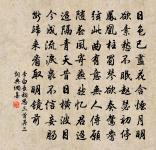 日色已盡花含煙月明
欲素愁不眠趙瑟初停
鳳凰柱蜀琴欲奏鴛鴦
弦此曲有意無人傳願
隨春風寄燕然憶君迢
迢隔青天昔日橫波目
今成流淚泉不信妾腸
斷歸來看取明鏡前
李白長相思三首其三
詞典網書